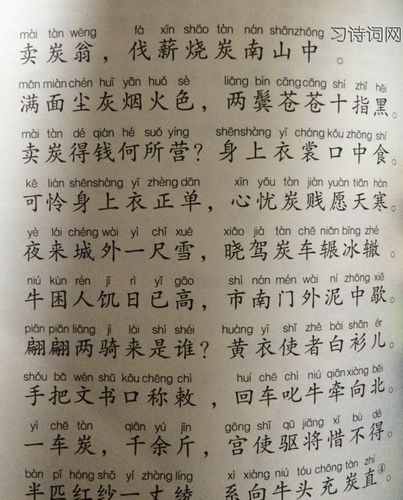 习诗词网
mài tàn wēng fá xīn shāo tàn nán shānzhōng
卖炭翁，伐薪烧炭南山中。
mǎn miàn chén huī yān huǒ sè liǎng bìn cāngcāng shí zhǐ hēi
满面尘灰烟火色，两鬓苍苍十指黑。
mài tàn dé qián hé suǒ yíng shēnshàng yī cháng kǒu zhōng shí
卖炭得钱何所营？身上衣裳口中食。
kě lián shēnshàng yī zhèng dān xīn yōu tàn jiàn yuàn tiān hán
可怜身上衣正单，心忧炭贱愿天寒。
yè lái chéng wài yì chǐ xuě xiǎo jià tàn chē niǎn bīng zhé
夜来城外一尺雪，晓驾炭车辗冰辙。
niú kùn rén jī rì yǐ gāo shì nán mén wài ní zhōng xiē
牛困人饥日已高，市南门外泥中歇。
piān piān liǎng jì lái shì shéi huáng yī shǐ zhě bái shān ér
翩翩两骑来是谁？黄衣使者白衫儿。
shǒu bǎ wén shū kǒu chēng chì huí chē chì niú qiān xiàng běi
手把文书口称敕，回车叱牛牵向北。
yì chē tàn qiān yú jīn gōng shǐ qū jiāng xī bù dé
一车炭，千余斤，宫使驱将惜不得。
bàn pǐ hóng shā yí zhàng líng xì xiàng niú tóu chōng tàn zhí
半匹红纱一丈绫，系向牛头充炭直④。